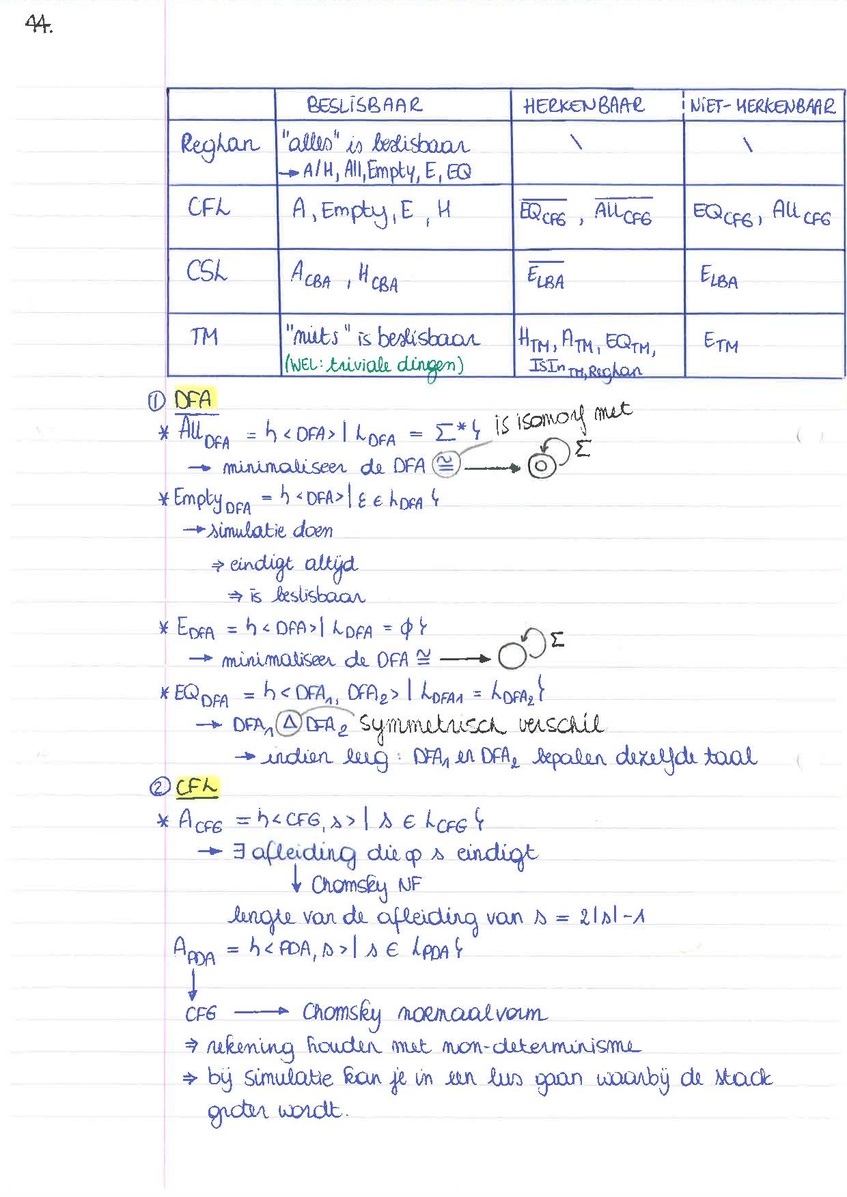 44.
BESLISBAAR HERKENBAAR NIET-HERKENBAAR
Reghan "alles" is beslisbaar \ \
→ A/H, All, Empty, E, EQ
CFL A, Empty, E, H \overline{EQ_{CFG}}, \overline{All_{CFG}} EQ_{CFG}, All_{CFG}
CSL A_{CBA}, H_{CBA} \overline{E_{LBA}} E_{LBA}
TM "niets" is beslisbaar H_{TM}, A_{TM}, EQ_{TM}, E_{TM}
(WEL: triviale dingen) IsIn_{TM,Reghan}
① DFA
* All_{DFA} = {<DFA> | L_{DFA} = Σ*} is isomorf met
→ minimaliseer de DFA ≅ → Σ
* Empty_{DFA} = {<DFA> | ε ∈ L_{DFA}}
→ simulatie doen
⇒ eindigt altijd
⇒ is beslisbaar
* E_{DFA} = {<DFA> | L_{DFA} = ϕ}
→ minimaliseer de DFA ≅ → Σ
* EQ_{DFA} = {<DFA₁, DFA₂> | L_{DFA1} = L_{DFA2}}
→ DFA₁ Δ DFA₂ symmetrisch verschil
→ indien leeg: DFA₁ en DFA₂ bepalen dezelfde taal
② CFL
* A_{CFG} = {<CFG, s> | s ∈ L_{CFG}}
→ ∃ afleiding die op s eindigt
↓ Chomsky NF
lengte van de afleiding van s = 2|s|-1
A_{PDA} = {<PDA, s> | s ∈ L_{PDA}}
↓
CFG → Chomsky normaalvorm
⇒ rekening houden met non-determinisme
⇒ bij simulatie kan je in een lus gaan waarbij de stack
groter wordt.